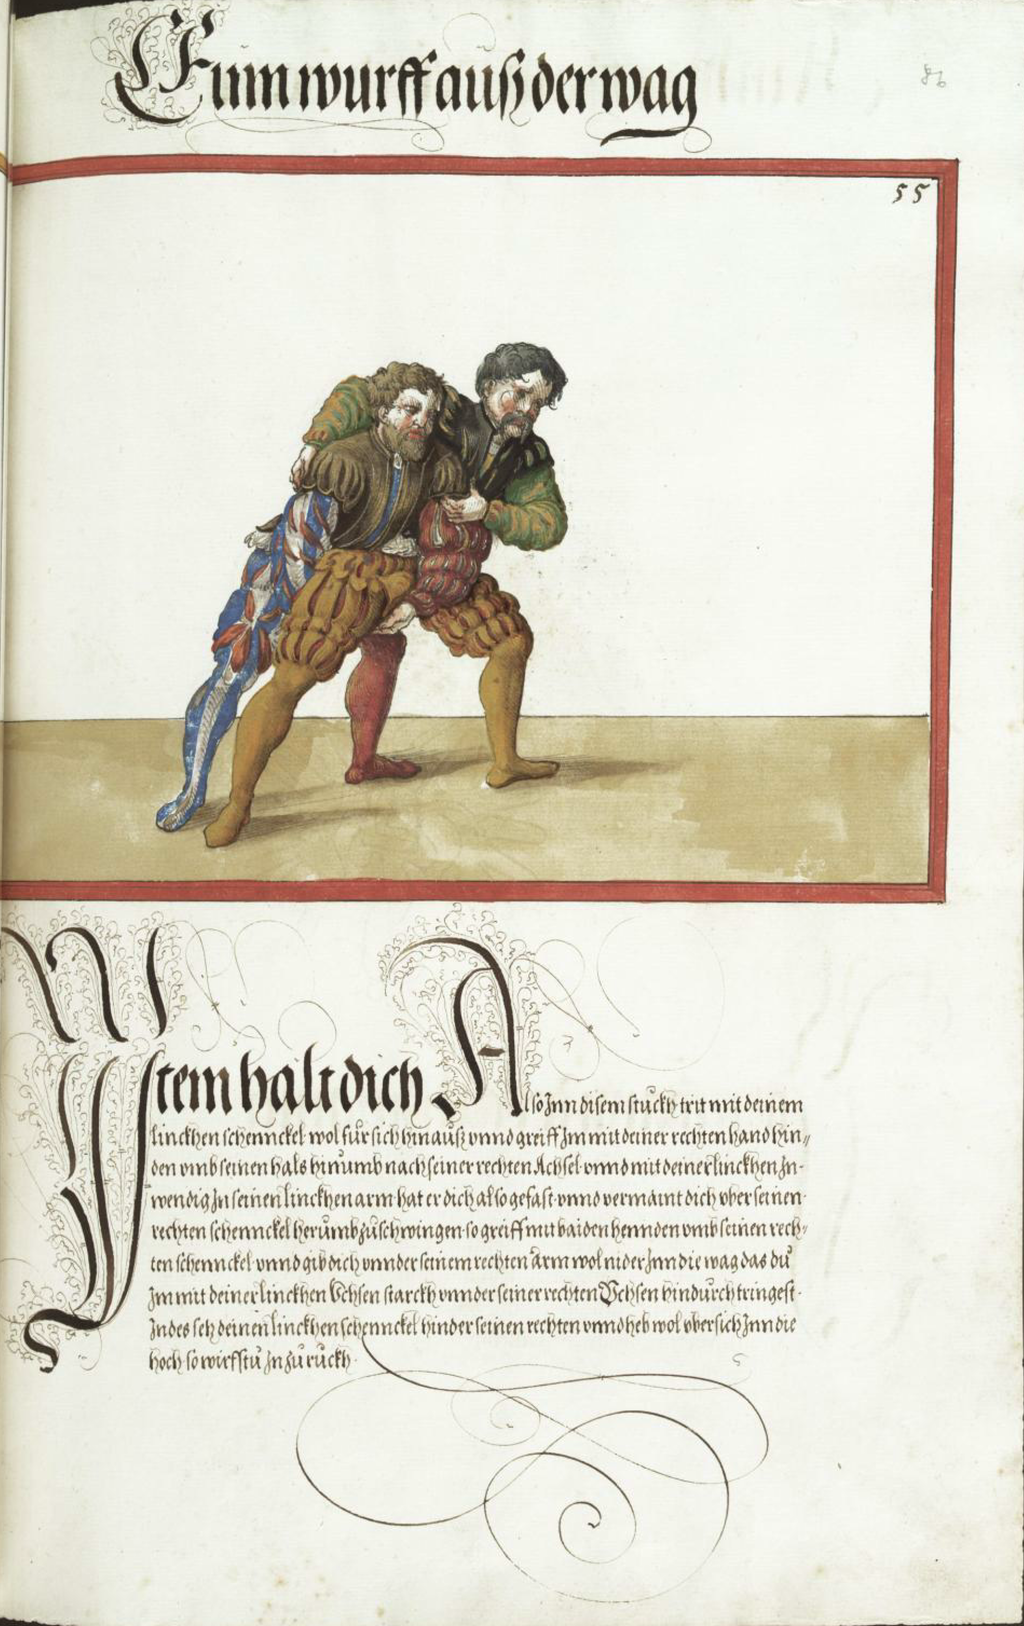 Einn wurff auß der wag
86
55
Item halt dich Also Jnn disem stuckh trit mit deinem
linckhen schennckel wol für sich hinauß vnnd greiff Jm mit deiner rechten hand hin„
den vmb seinen hals hinumb nach seiner rechten Achsel vnnd mit deiner linckhen Jn-
wendig Jn seinen linckhen arm hat er dich also gefast vnnd vermaint dich vber seinen
rechten schennckel herumb zu schwingen so greiff mit baiden hennden vmb seinen rech„
ten schennckel vnnd gib dich vnnder seinem rechten Arm wol nider Jnn die wag das dü
Jm mit deiner linckhen Vchsen starckh vnnder seiner rechten Vchsen hindurch tringest
Jndes setz deinen linckhen schennckel hinder seinen rechten vnnd heb wol vbersich Jnn die
hoch so wirfstu Jn zu ruckh.